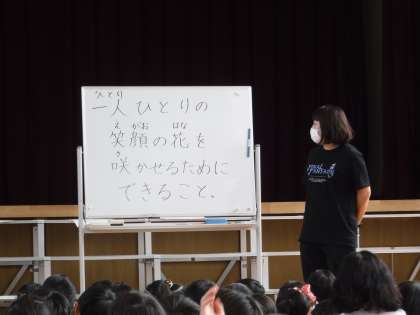 ひとり
一人ひとりの
えがお はな
笑顔の花を
さ
咲かせるために
できること。